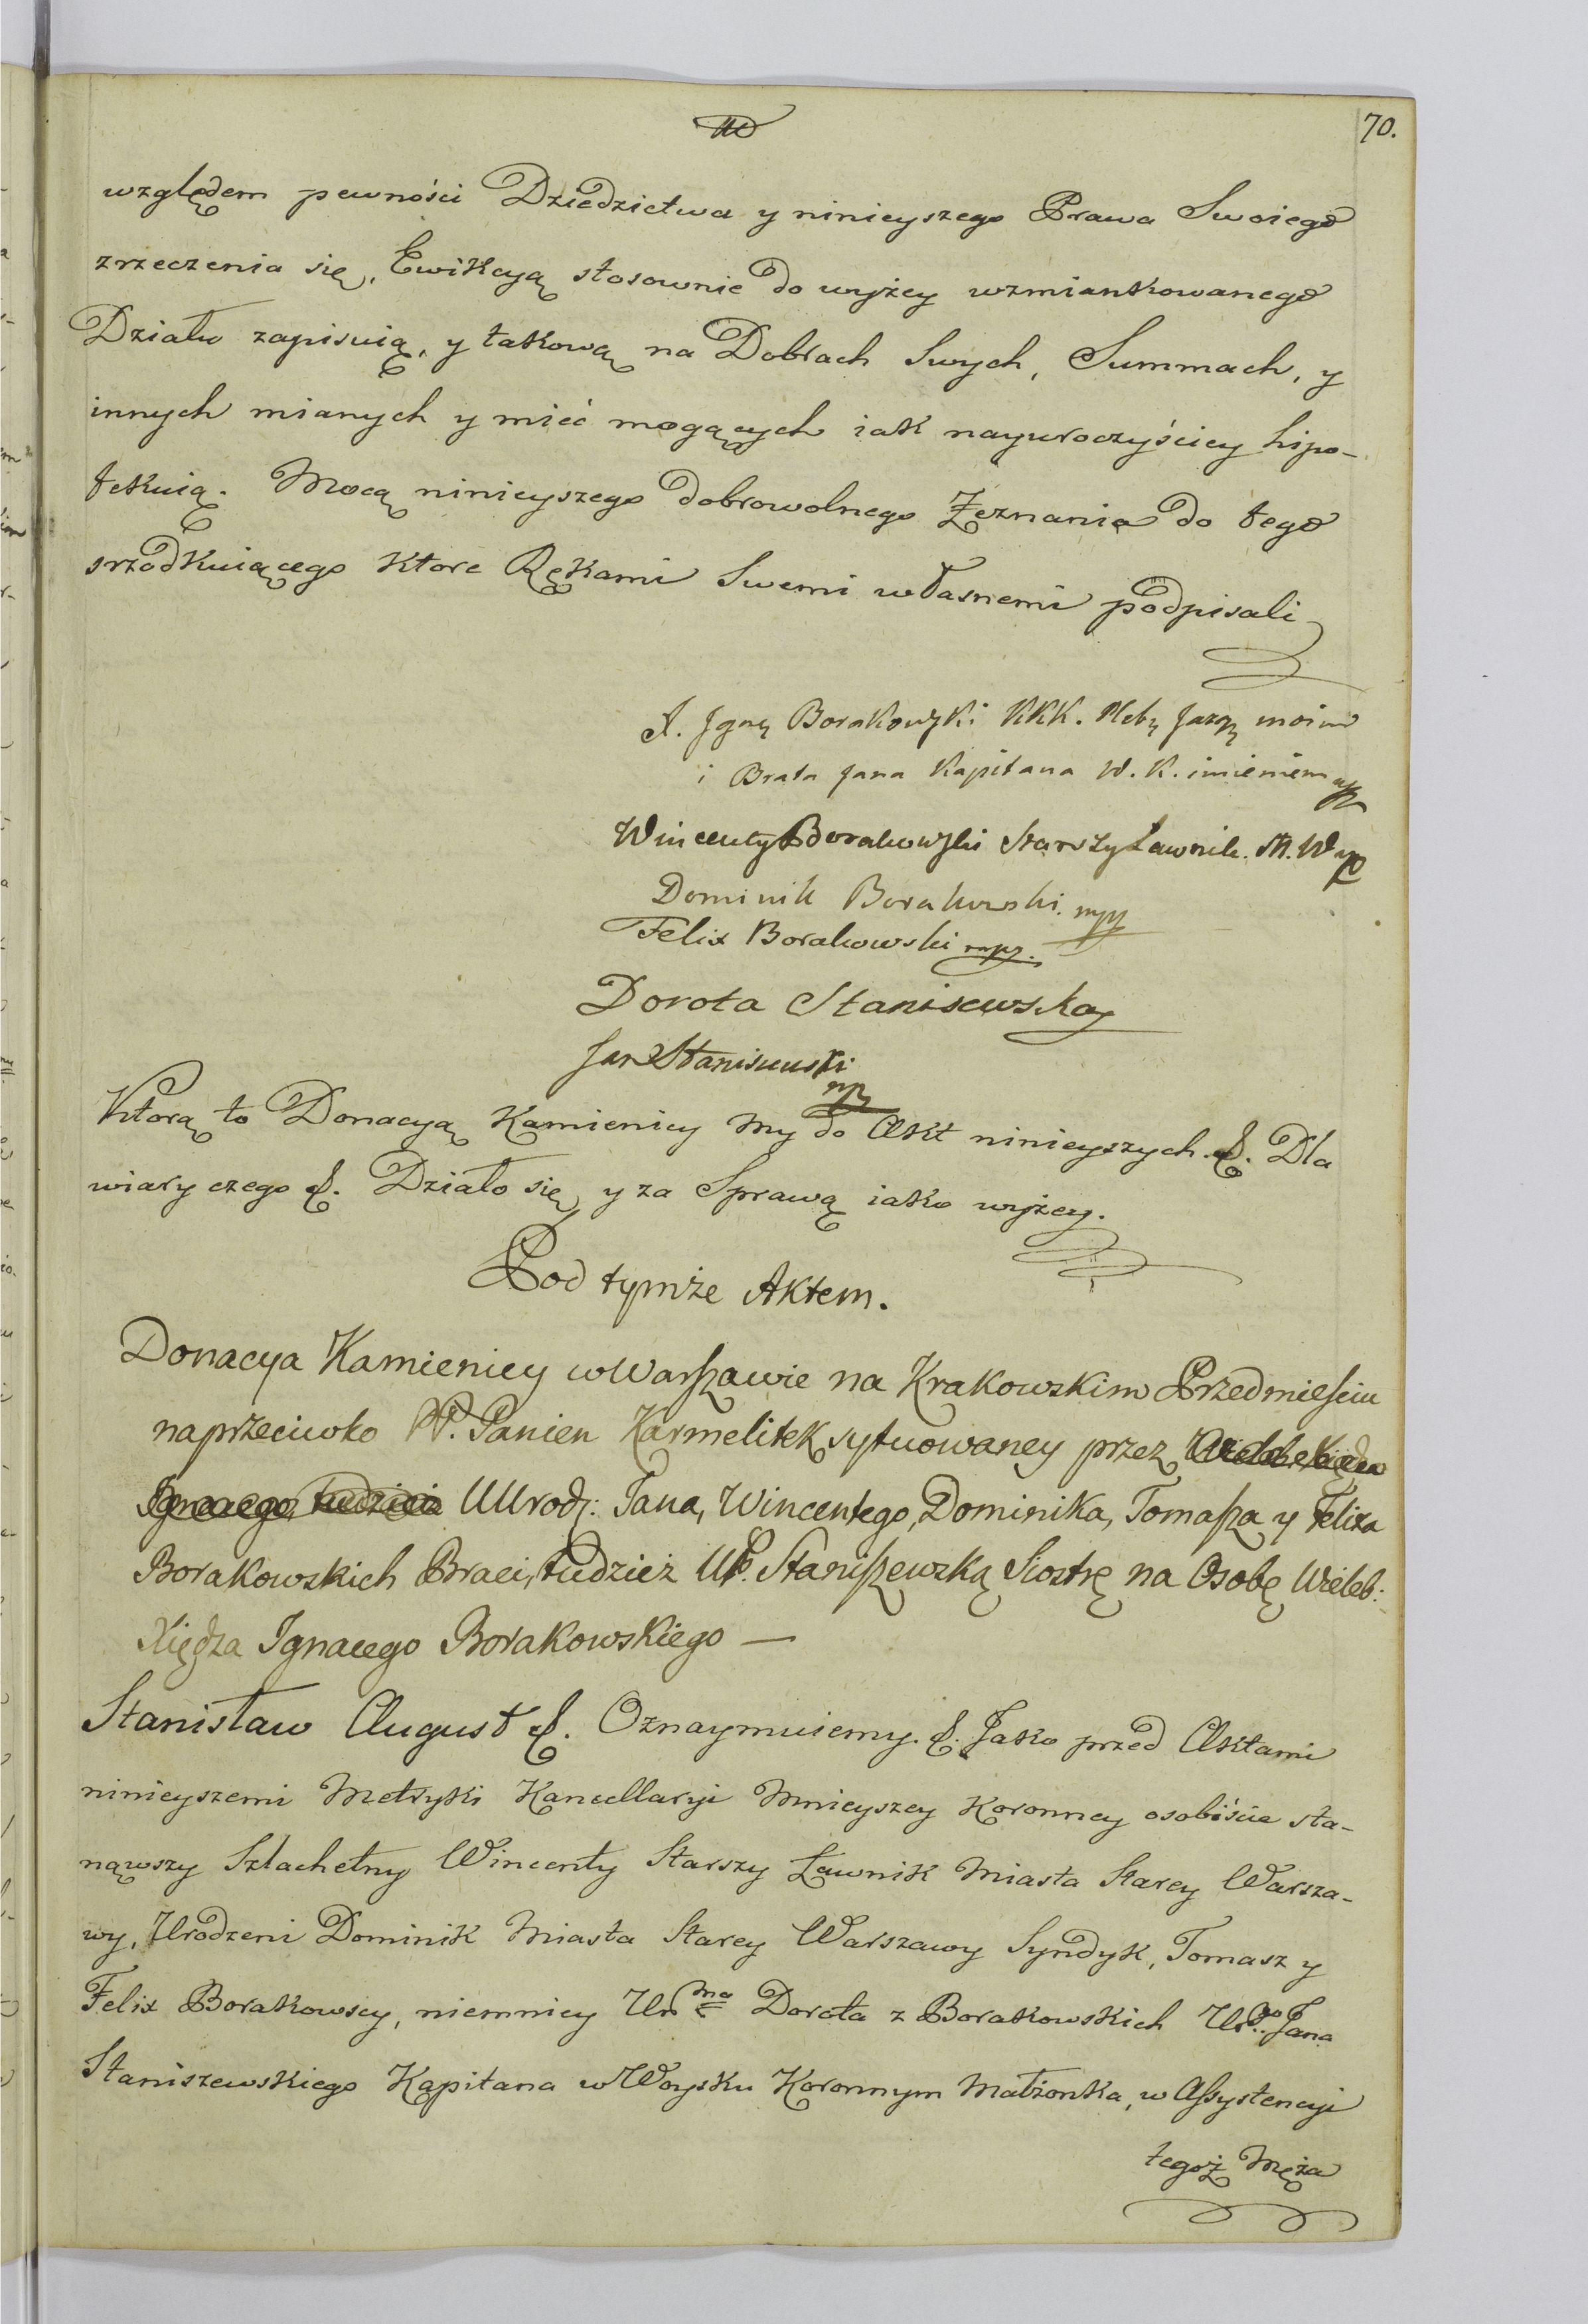 70.
względem pewności Dziedzictwa y ninieyszego Prawa Swoiego
zrzeczenia się, Ewikcyą stosownie do wyżey wzmiankowanego
Działu zapisuią, y takową na Dobrach Swych, Summach, y
innych mianych y mieć mogących iak nayuroczyściey hipo-
tekuią. Mocą ninieyszego dobrowolnego Zeznania do tego
srzodkuiącego które Rękami Swemi własnemi podpisali
X. Borakowski KKK. moim
i Brata Jana Kapitana W. K. imieniem mp
Wincenty Borakowski Starszy Ławnik. M. W mp
Dominik Borakowski. mpp
Felix Borakowski mpp.
Dorota Stanisewska
Jan Stanisewski
mp
Którą to Donacyą Kamienicy My do Akt ninieyszych. &. Dla
wiary czego &. Działo się, y za Sprawą iako wyżey.
Pod tymże Aktem.
Donacya Kamienicy w Warszawie na Krakowskim Przedmieściu
naprzeciwko W. Panien Karmelitek sytuowaney przez
UUrodz: Jana, Wincentego, Dominika, Tomasza y Felixa
Borakowskich Braci, tudzież UP. Staniszewską Siostrę na Osobę Wieleb:
Xiędza Ignacego Borakowskiego —
Stanisław August &. Oznaymuiemy. &. Jako przed Aktami
ninieyszemi Metryki Kancellaryi Mnieyszey Koronney osobiście sta-
nąwszy Szlachetny Wincenty Starszy Ławnik Miasta Starey Warsza-
wy, Urodzeni Dominik Miasta Starey Warszawy Syndyk, Tomasz y
Felix Borakowscy, niemniey Ur:na Dorota z Borakowskich Ur:go Jana
Staniszewskiego Kapitana w Woysku Koronnym Małżonka, w Assystencyi
tegoż Męża